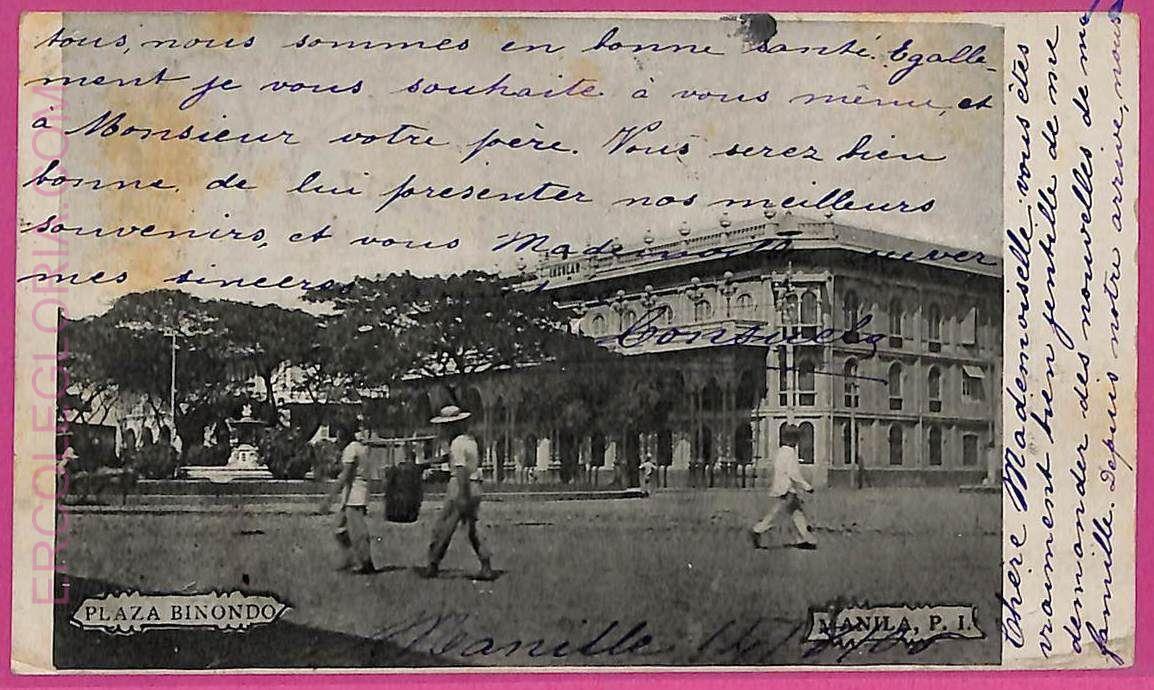 Chère Mademoiselle, vous êtes
vraiment bien jentille de me
demander des nouvelles de ma
famille. Depuis notre arrivé, nous
tous, nous sommes en bonne santé. Egalle-
ment je vous souhaite à vous même, et
à Monsieur votre père. Vous serez bien
bonne de lui presenter nos meilleurs
souvenirs, et vous
mes
Consuelo
INSULAR
PLAZA BINONDO
MANILA, P. I.
Manille
ERCOLEGLORIA.COM